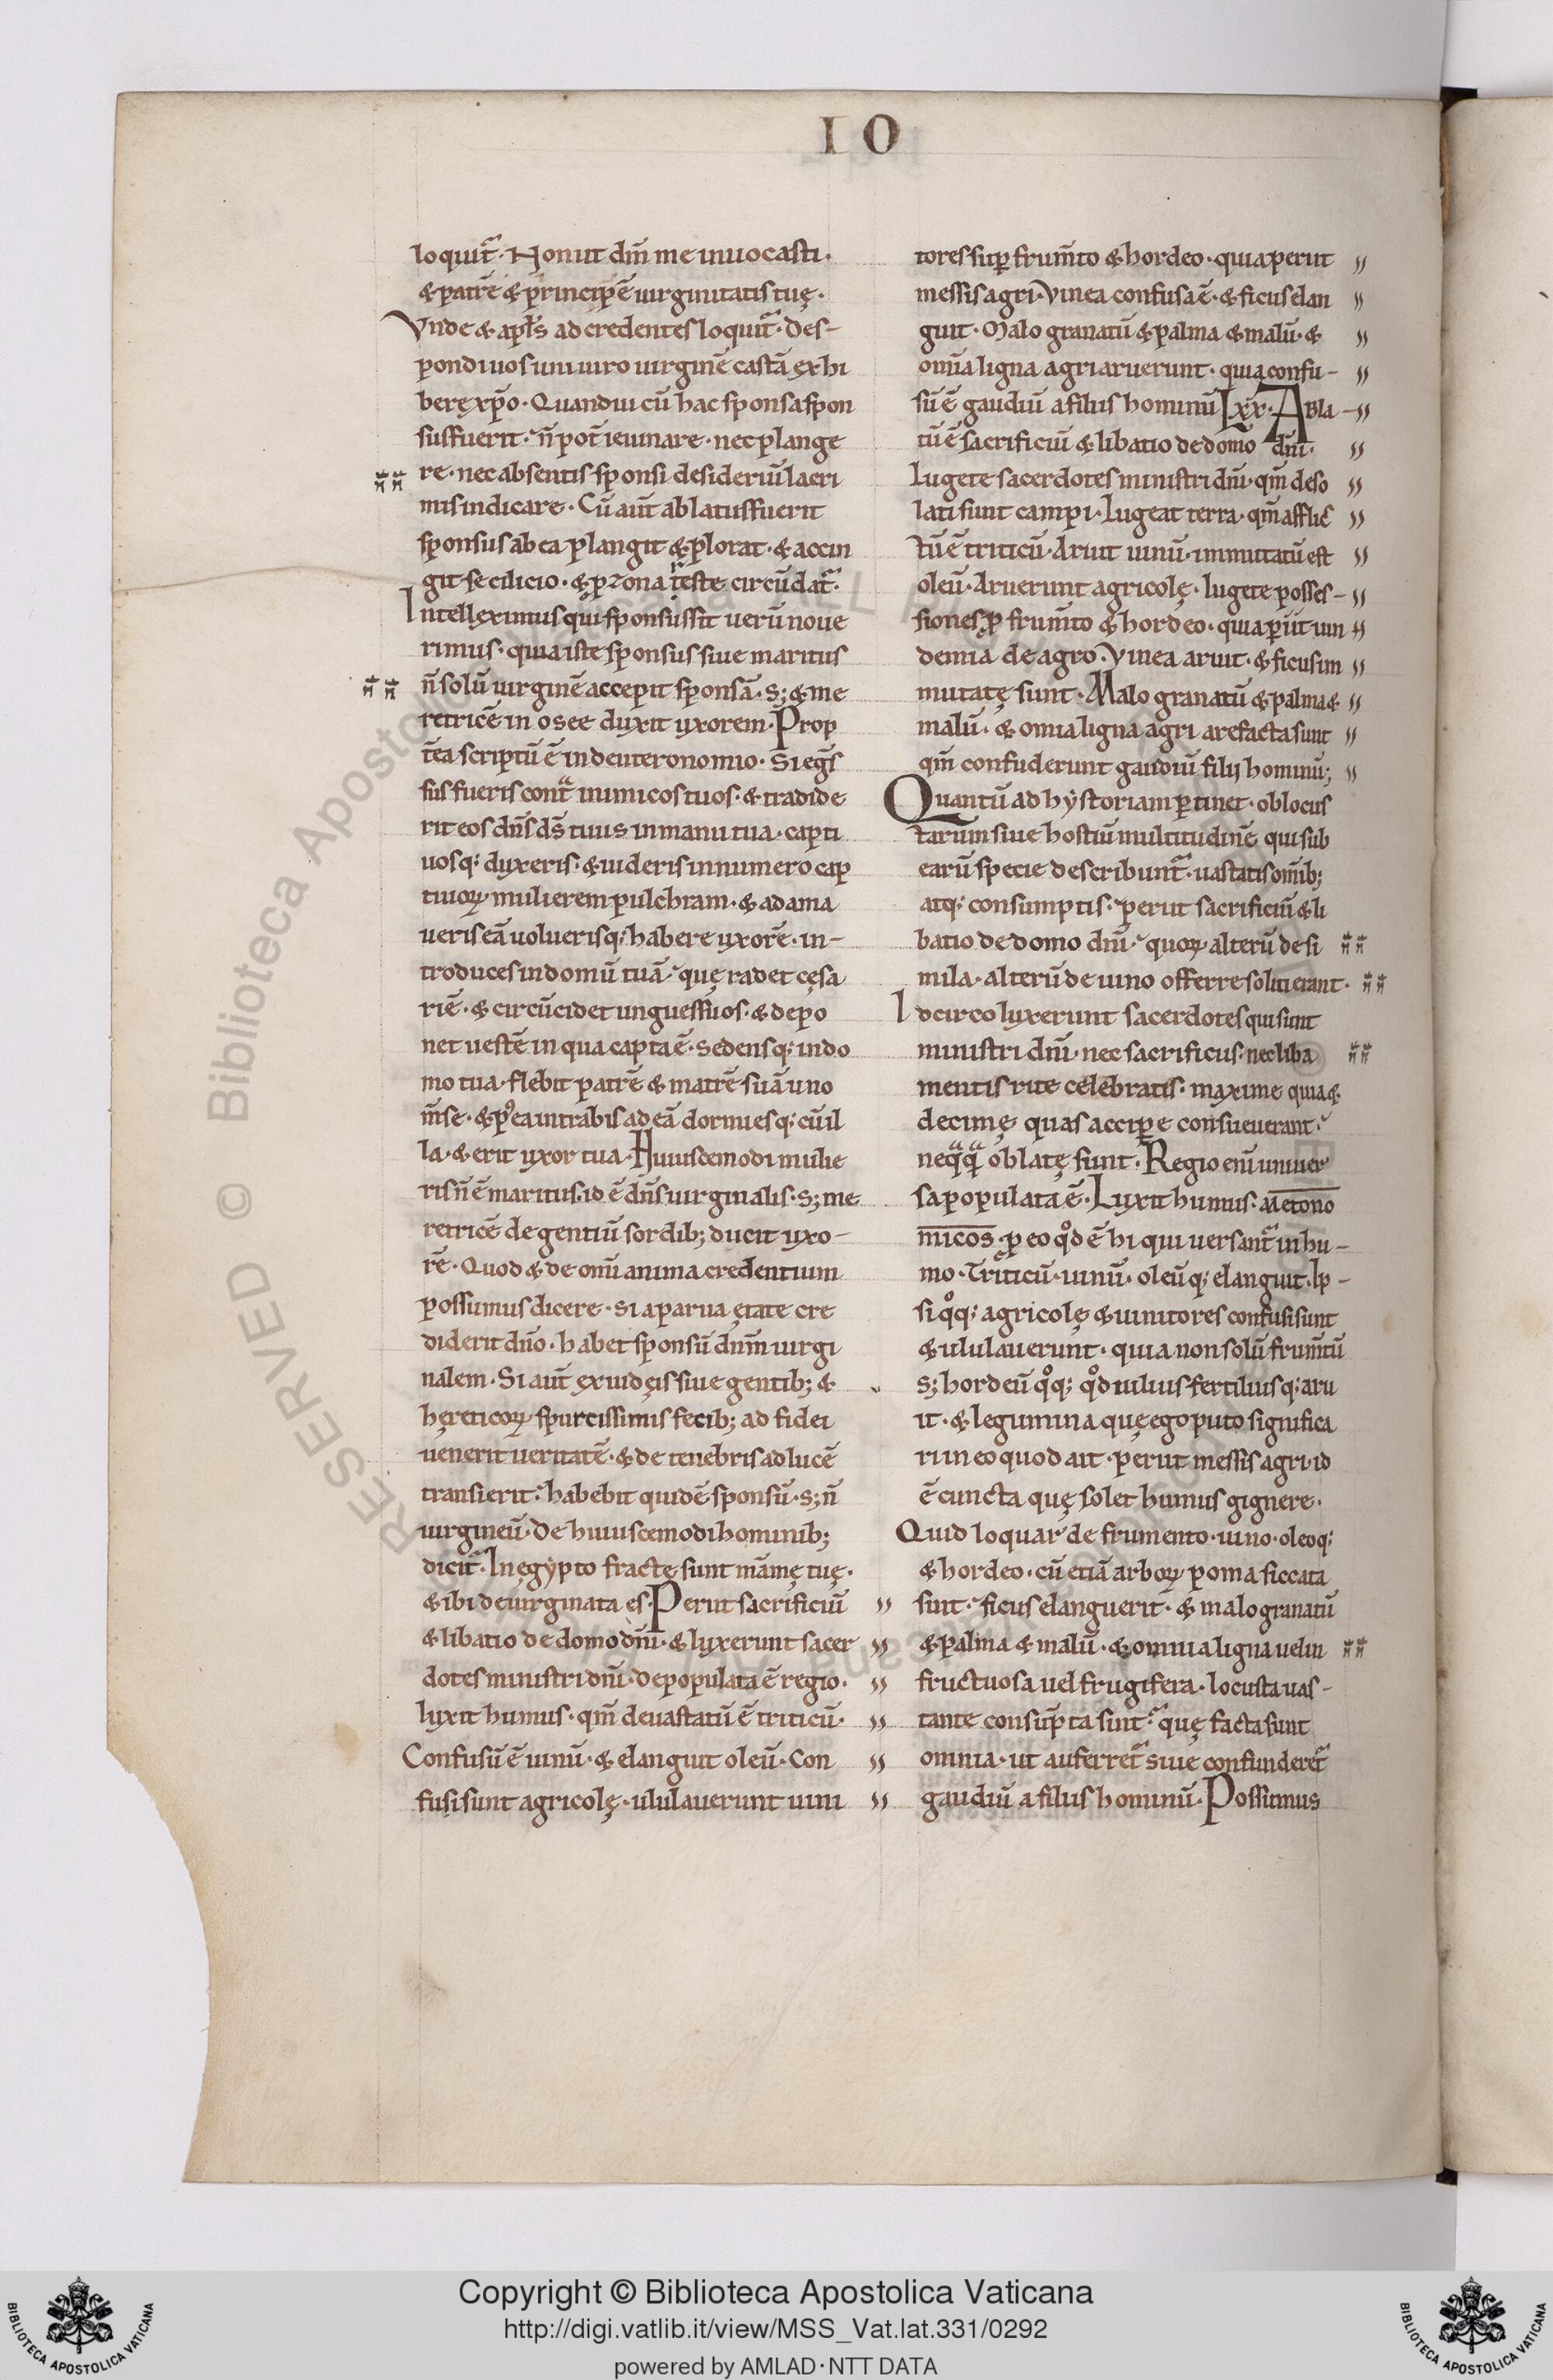 IO
loquit᷑. Nonut dm̄ me inuocasti.
& patrē & principē uirginitatis tuę.
Vnde & apl̄s ad credentes loquit᷑. Des-
pondi uos uni uiro uirginē castā exhi
berę xp̄o. Quandiu cū hac sponsa spon
sus fuerit. n̄ pot̄ ieiunare. nec plange
re. nec absentis sponsi desideriū lacri
mis indicare. Cū aut̄ ablatus fuerit
sponsus ab ea plangit & plorat. & accin
git se cilicio. & p zona r̄este circūdat᷑.
Intellęximus qui sponsus sit uerū noue
rimus. quia iste sponsus siue maritus
n̄ solū uirginē accepit sponsā. s; & me
retricē in osee duxit uxorem. Prop
t̄ea scriptū ē in deuteronomio. Si eg̅s
sus fueris cont̄ inimicos tuos. & tradide
rit eos dn̄s ds̄ tuus in manu tua. capti
uosq; duxeris. & uideris in numero cap
tiuoꝝ mulierem pulchram. & adama
ueris eā uoluerisq; habere uxorē. in-
troduces in domū tuā. quę radet cęsa
riē. & circūcidet ungues suos. & depo
net uestē in qua capta ē. Sedensq; in do
mo tua. flebit patrē & matrē suā uno
m̄se. & p᷒ea intrabis ad eā dormiesq; cū il
la. & erit uxor tua. Huiuscemodi mulie
ris n̄ ē maritus. id ē dn̄s uirginalis. s; me
retricē de gentiū sordib; ducit uxo-
rē. Quod & de omī anima credentium
possumus dicere. Si a parua ętate cre
diderit dn̄o. habet sponsū dnm̄ uirgi
nalem. Si aut̄ ex iudęis siue gentib; &
hęreticoꝝ spurcissimis fecib; ad fidei
uenerit ueritatē. & de tenebris ad lucē
transierit. habebit quidē sponsū. s; n̄
uirgineū. De huiuscemodi hominib;
dicit᷑. In ęgypto fractę sunt māmę tuę.
& ibi deuirginata es. Periit sacrificiū
& libatio de domo dn̄i. & luxerunt sacer
dotes ministri dn̄i. depopulata ē regio.
luxit humus. qm̄ deuastatū ē triticū.
Confusū ē uinū. & elanguit oleū. Con
fusi sunt agricolę. ululauerunt uini
tores sup frum̄to & hordeo. quia periit
messis agri. Vinea confusa ē. & ficus elan
guit. Malogranatū & palma & malū. &
omīa ligna agri aruerunt. quia confu-
sū ē gaudiū a filiis hominū. Lxx. Abla-
tū ē sacrificiū & libatio de domo dn̄i.
Lugete sacerdotes ministri dn̄i. qm̄ deso
lati sunt campi. Lugeat terra. qm̄ afflic̄
tū ē triticū. Aruit uinū. immutatū est
oleū. Aruerunt agricolę. lugete posses-
siones p frum̄to & hordeo. quia piit uin
demia de agro. Vinea aruit. & ficus im
mutatę sunt. Malogranatū & palma &
malū. & omīa ligna agri arefacta sunt
qm̄ confuderunt gaudiū filij hominū;
Quantū ad hystoriam ptinet. ob locus
tarum siue hostiū multitudinē qui sub
earū specie describunt᷑. uastatis omīb;
atq; consumptis. periit sacrificiū & li
batio de domo dn̄i. quoꝝ alterū de si
mila. alterū de uino offerre soliti erant.
Idcirco luxerunt sacerdotes qui sunt
ministri dn̄i. nec sacrificiis. nec liba
mentis rite celebratis. maxime quia &
decimę quas accipe consueuerant.
neq̄q̄ oblatę sunt. Regio enī uniuer
sa populata ē. Luxit humus. metono
micos. p eo qd̊ ē hi qui uersant᷑ in hu-
mo. Triticū. uinū. oleūq; elanguit. Ip-
si qq̊; agricolę & uinitores confusi sunt
& ululauerunt. quia non solū frum̄tū
s; hordeū qq̊; qd̊ uilius fertiliusq; aru
it. & legumina quę ego puto significa
ri in eo quod ait. periit messis agri. id
ē cuncta quę solet humus gignere.
Quid loquar de frumento. uino. oleoq;
& hordeo. cū etiā arboꝝ poma siccata
sint. ficus elanguerit. & malogranatū
& palma & malū. & omnia ligna uel in
fructuosa uel frugifera. locusta uas-
tante consūpta sint. quę facta sunt
omnia. ut auferret᷑ siue confunderet᷑
gaudiū a filiis hominū. Possumus
RESERVED © Biblioteca Apostolica
Copyright © Biblioteca Apostolica Vaticana
http://digi.vatlib.it/view/MSS_Vat.lat.331/0292
powered by AMLAD·NTT DATA
BIBLIOTECA APOSTOLICA VATICANA
BIBLIOTECA APOSTOLICA VATICANA